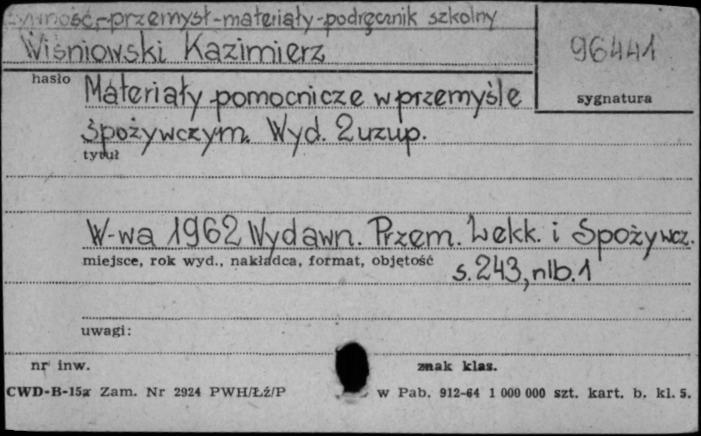 żywność-przemysł-materiały-podręcznik szkolny
Wiśniowski Kazimierz
96441
hasło
sygnatura
Materiały pomocnicze w przemyśle
spożywczym. Wyd. 2 uzup.
tytuł
W-wa 1962 Wydawn. Przem. Lekk. i Spożywcz.
miejsce, rok wyd., nakładca, format, objętość
s. 243, nlb. 1
uwagi:
nr inw.
znak klas.
CWD-B-15a Zam. Nr 2924 PWH/Łź/P
w Pab. 912-64 1 000 000 szt. kart. b. kl. 5.